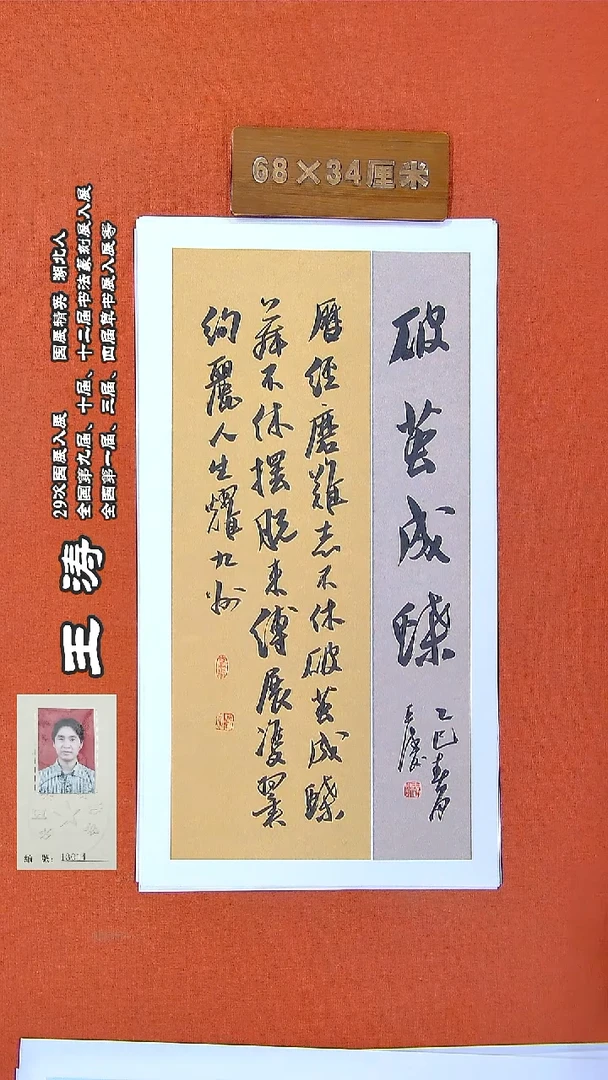 68×34厘米
破茧成蝶
乙巳春月
王涛
歷經磨難志不休破茧成蝶
舞不休擺脱束縛展雙翼
絢麗人生耀九州
29次国展入展 国展精英 湖北人
全国第九届、十届、十二届书法篆刻展入展
全国第一届、三届、四届草书展入展等
王涛
编号: